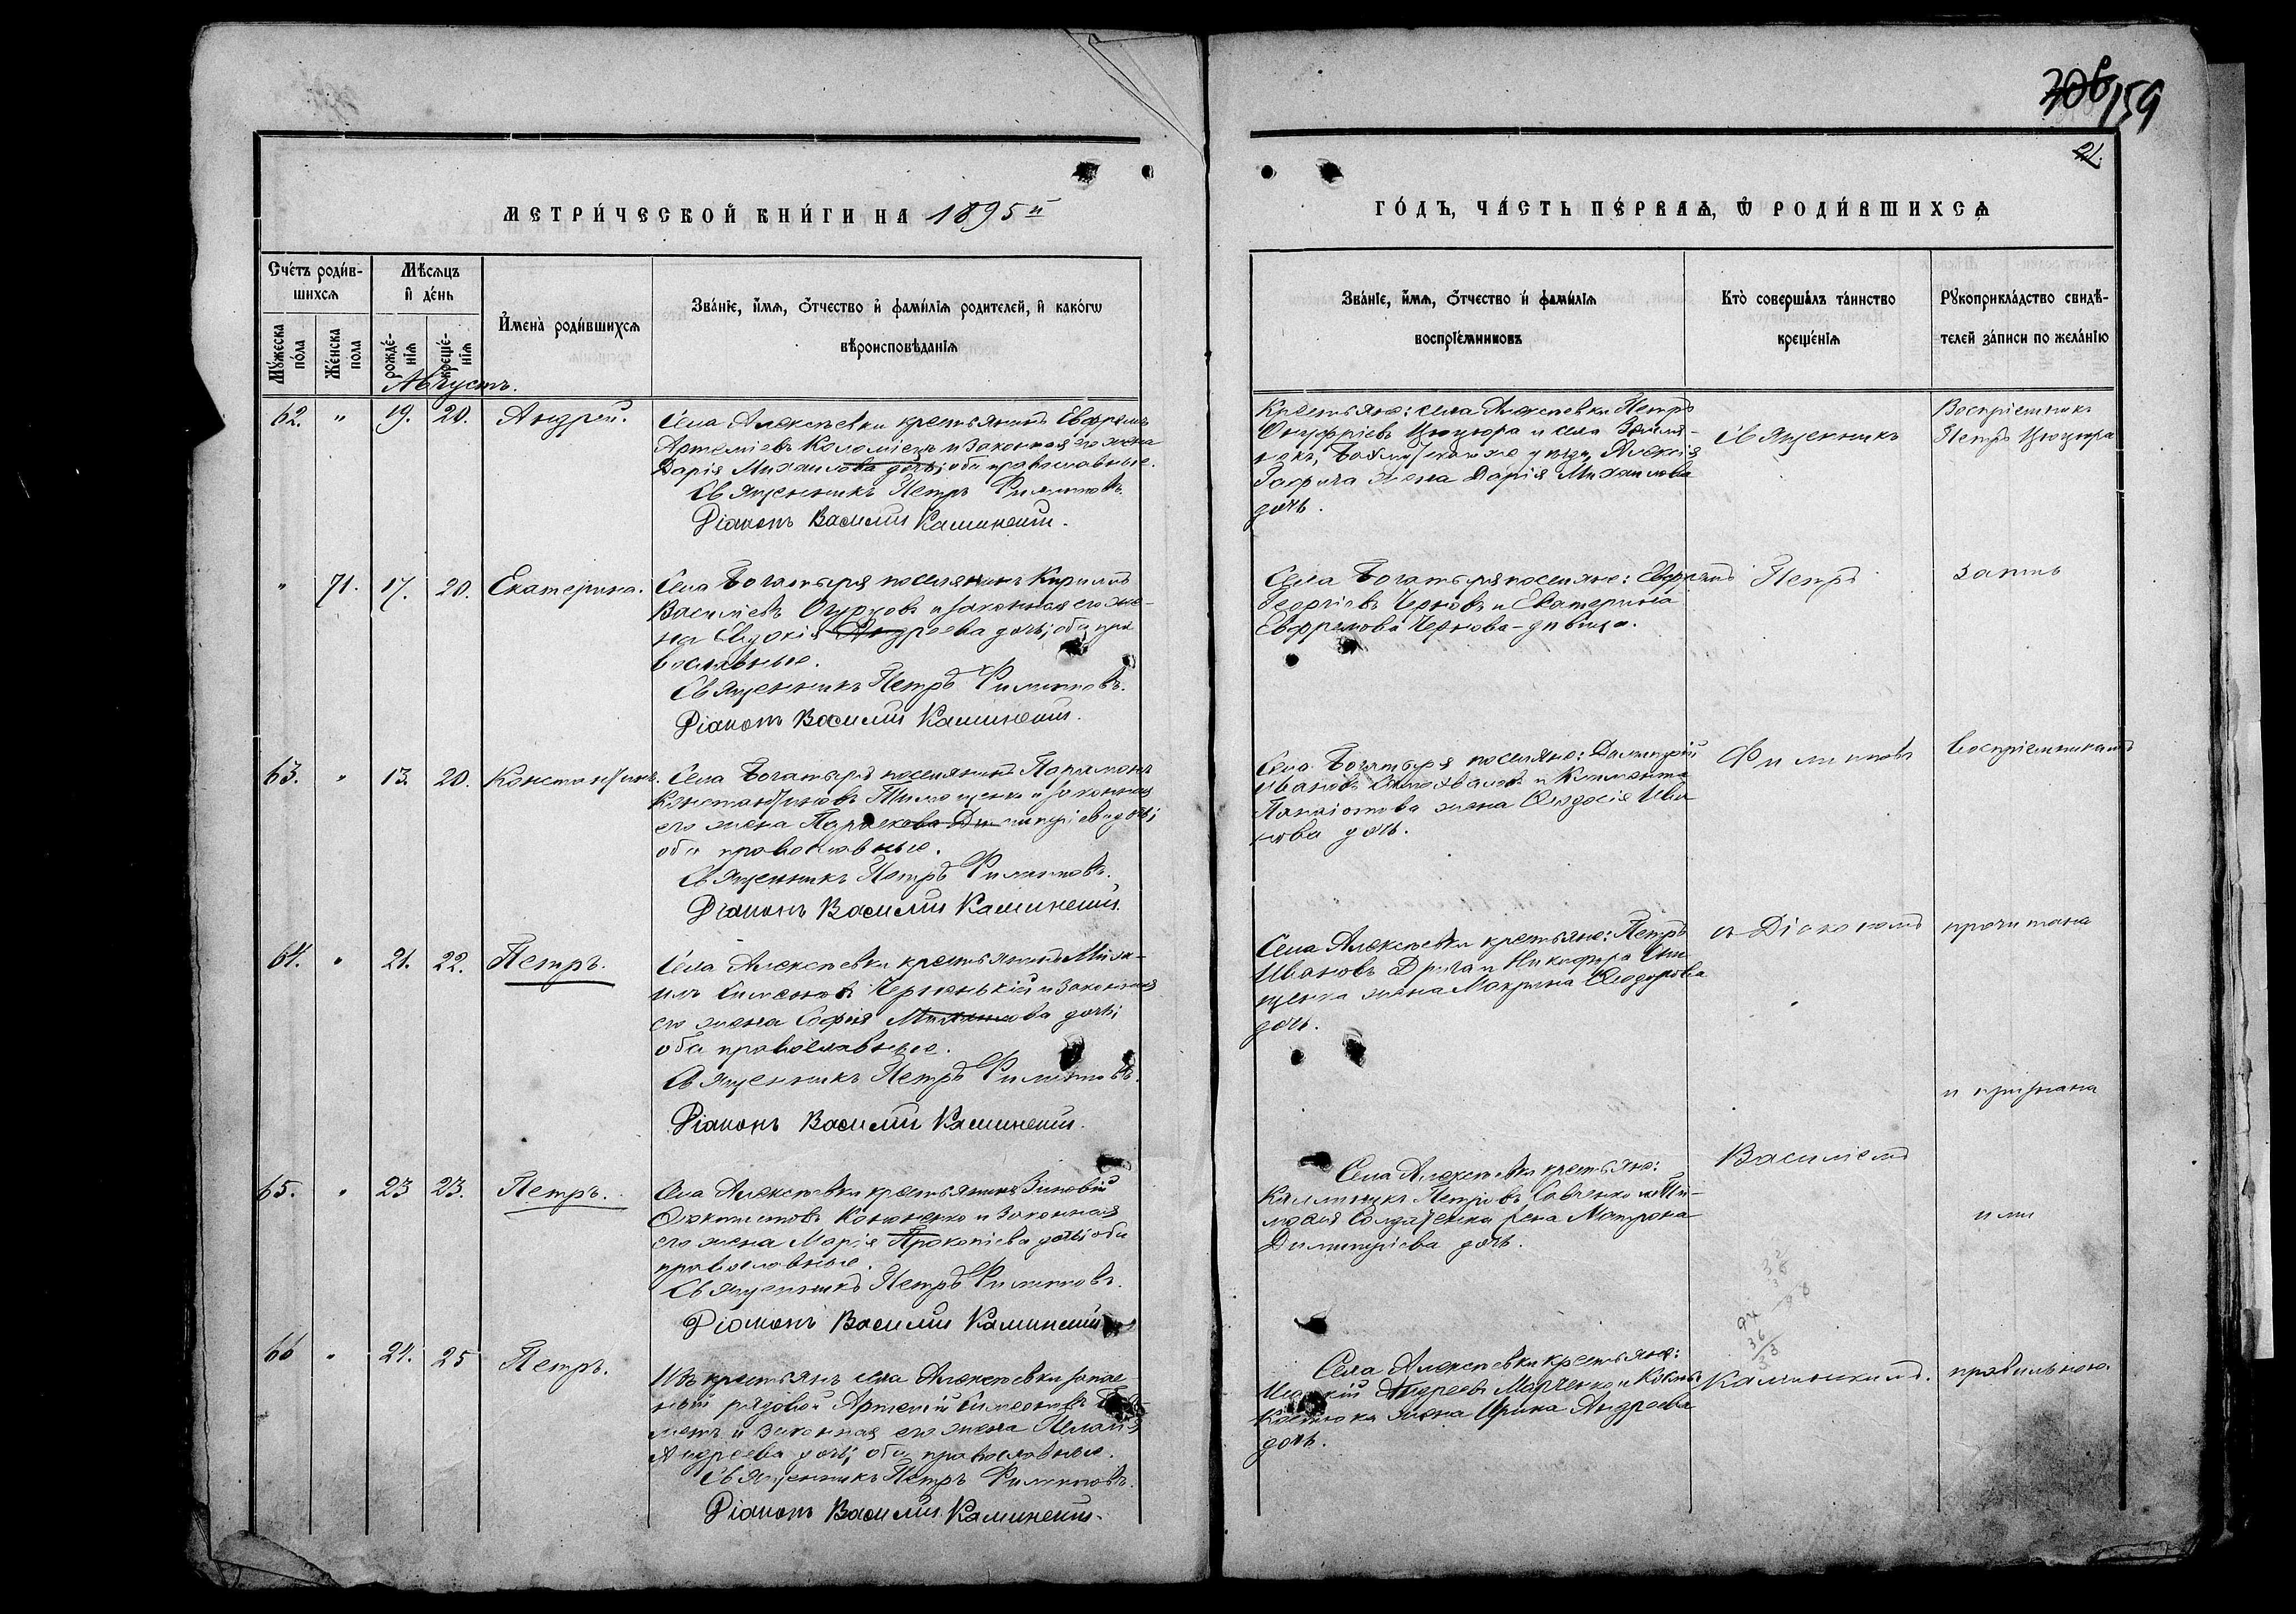 306/159
21.
МЕТРИ́ЧЕСКОЙ КНИ́ГИ НА 1895 й
ГО́ДЪ, ЧА́СТЬ ПЕ́РВАѦ, Ѡ РОДИ́ВШИХСѦ
Сче́тъ роди́в-
шихсѧ
Мꙋ́жеска по́ла
Же́нска пола
Мѣ́сѧцъ
и҆ де́нь
рожде́-
нїѧ
креще́-
нїѧ
И҆мена̀ роди́вшихсѧ
Зва́нїе, и҆́мѧ, ѻ҆́тчество и҆ фами́лїѧ родителей, и҆ како́гѡ
вѣроисповѣ́данїѧ
Зва́нїе, и҆́мѧ, ѻ҆́тчество и҆ фами́лїѧ
воспрїе́мниковъ
Кто̀ соверша́лъ та́инство
креще́нїѧ
Рꙋкоприкла́дство свидѣ́-
телей за́писи по жела́нїю
Августъ.
62. " 19. 20. Андрей.
Села Алексѣевки крестьянинъ Ефремъ
Артеміевъ Коломіецъ и законная его жена
Дарія Михаилова дочь; оба православные.
Священникъ Петръ Филипповъ.
Діаконъ Василій Калинскій.
Крестьяне: села Алексѣевки Петръ
Онуфріевъ Цюцюра и села
уѣзда, Алексія
жена Дарія Михаилова
дочь.
Священникъ
Воспріемникъ
Петръ Цюцюра
" 71. 17. 20. Екатерина.
Села Богатыря поселянинъ Кириллъ
Василіевъ Огурцовъ и законная его же-
на Евдокія Андреева дочь; оба пра
вославные.
Священникъ Петръ Филипповъ.
Діаконъ Василій Калинскій.
Села Богатыря поселяне: Ефремъ
Георгіевъ Черновъ и Екатерина
Ефремова Чернова - дѣвица.
Петръ
запись
63. " 13. 20. Константинъ.
Села Богатыря поселянинъ Парамонъ
Константиновъ Тимощенко и законная
его жена Параскева Димитріева дочь;
оба православные.
Священникъ Петръ Филипповъ.
Діаконъ Василій Калинскій.
Села Богатыря поселяне: Димитрій
Ивановъ и Климента
жена Ѳеодосія Ива
нова дочь.
Филипповъ
воспріемникамъ
64. " 21. 22. Петръ.
Села Алексѣевки крестьянинъ Миха-
илъ Симеоновъ Черненькій и законная
его жена Софія дочь;
оба православные.
Священникъ Петръ Филипповъ.
Діаконъ Василій Калинскій.
Села Алексѣевки крестьяне: Петръ
Ивановъ Дрига и Никифора
жена Макрина Ѳеодорова
дочь.
съ Діакономъ
прочитана
и признана
65. " 23 23. Петръ.
Села Алексѣевки крестьянинъ Зиновій
Ѳеоктистовъ и законная
его жена Марія Прокопіева дочь; оба
православные.
Священникъ Петръ Филипповъ.
Діаконъ Василій Калинскій
Села Алексѣевки крестьяне:
Каллиникъ Петровъ Савченко и Ти-
моѳея жена Матрона
Димитріева дочь.
Василіемъ
ими
66 " 24. 25 Петръ.
Изъ крестьянъ села Алексѣевки запас-
ный рядовой Артемій Симеоновъ
и законная его жена Пелагія
Андреева дочь; оба православные.
Священникъ Петръ Филипповъ.
Діаконъ Василій Калинскій.
Села Алексѣевки крестьяне:
Андреевъ Марченко и
жена Ирина Андреева
дочь.
Калинскимъ.
правильною.